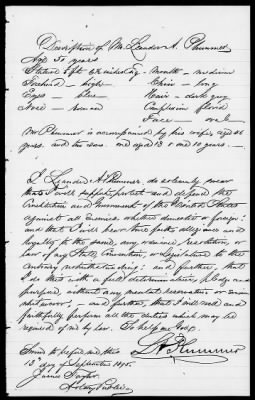 Description of Mr. Leander A. Plummer
Age 51 years
Stature 5 ft 6½ inches Eng. Mouth - medium
Forehead - high Chin - long
Eyes - blue Hair - dark gray
Nose - Complexion florid
Face - oval
Mr Plummer is accompanied by his wife, aged
years, and two sons aged 13 & 10 years. -
I, Leander A. Plummer, do solemnly swear
that I will support, protect and defend the
Constitution and Government of the United States
against all enemies, whether domestic or foreign;
and that I will bear true faith, allegiance and
loyalty to the same, any ordinance, resolution, or
law of any State, Convention, or Legislature to the
contrary notwithstanding; and further, that
I do this with a full determination, pledge and
purpose, without any mental reservation or evasion
whatsoever; - and further, that I will well and
faithfully perform all the duties which may be
required of me by law. So help me God.
L A Plummer
Sworn to before me this
13th day of September
James Taylor
Notary Public